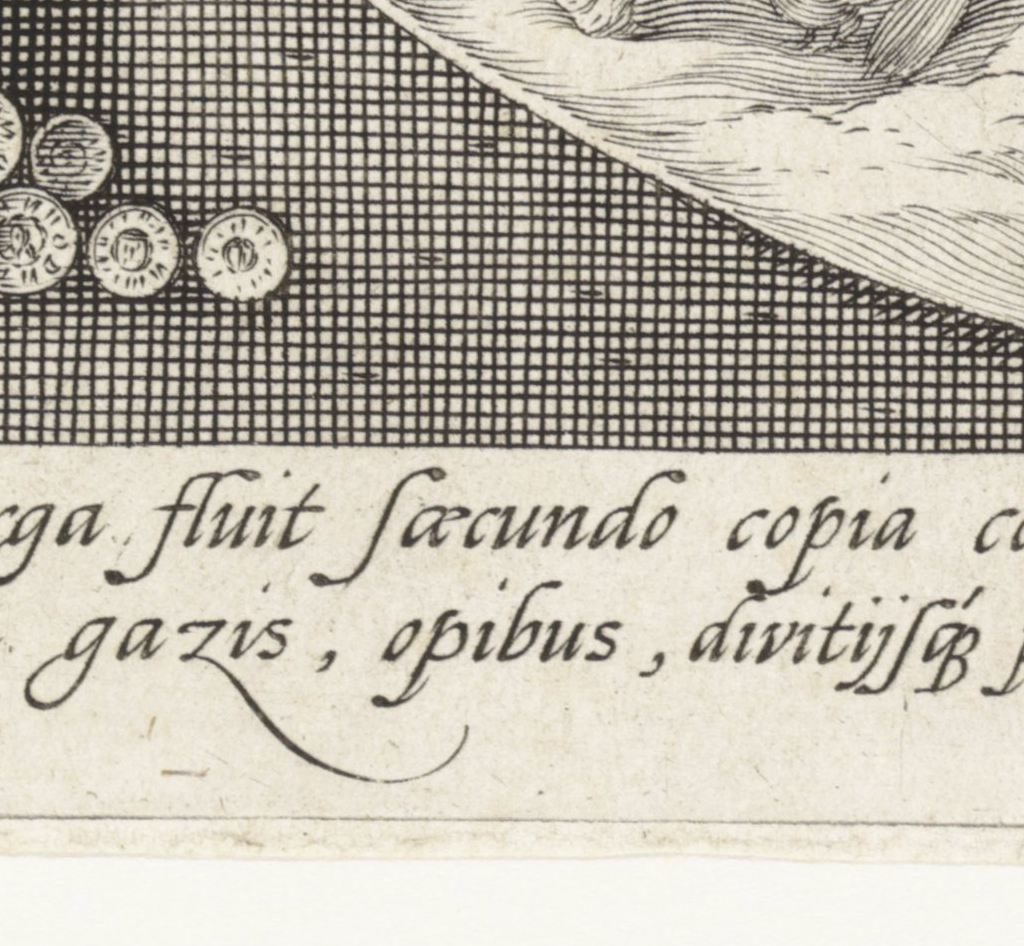 fluit ſæcundo copia
gazis, opibus, divitijſq́ꝫ